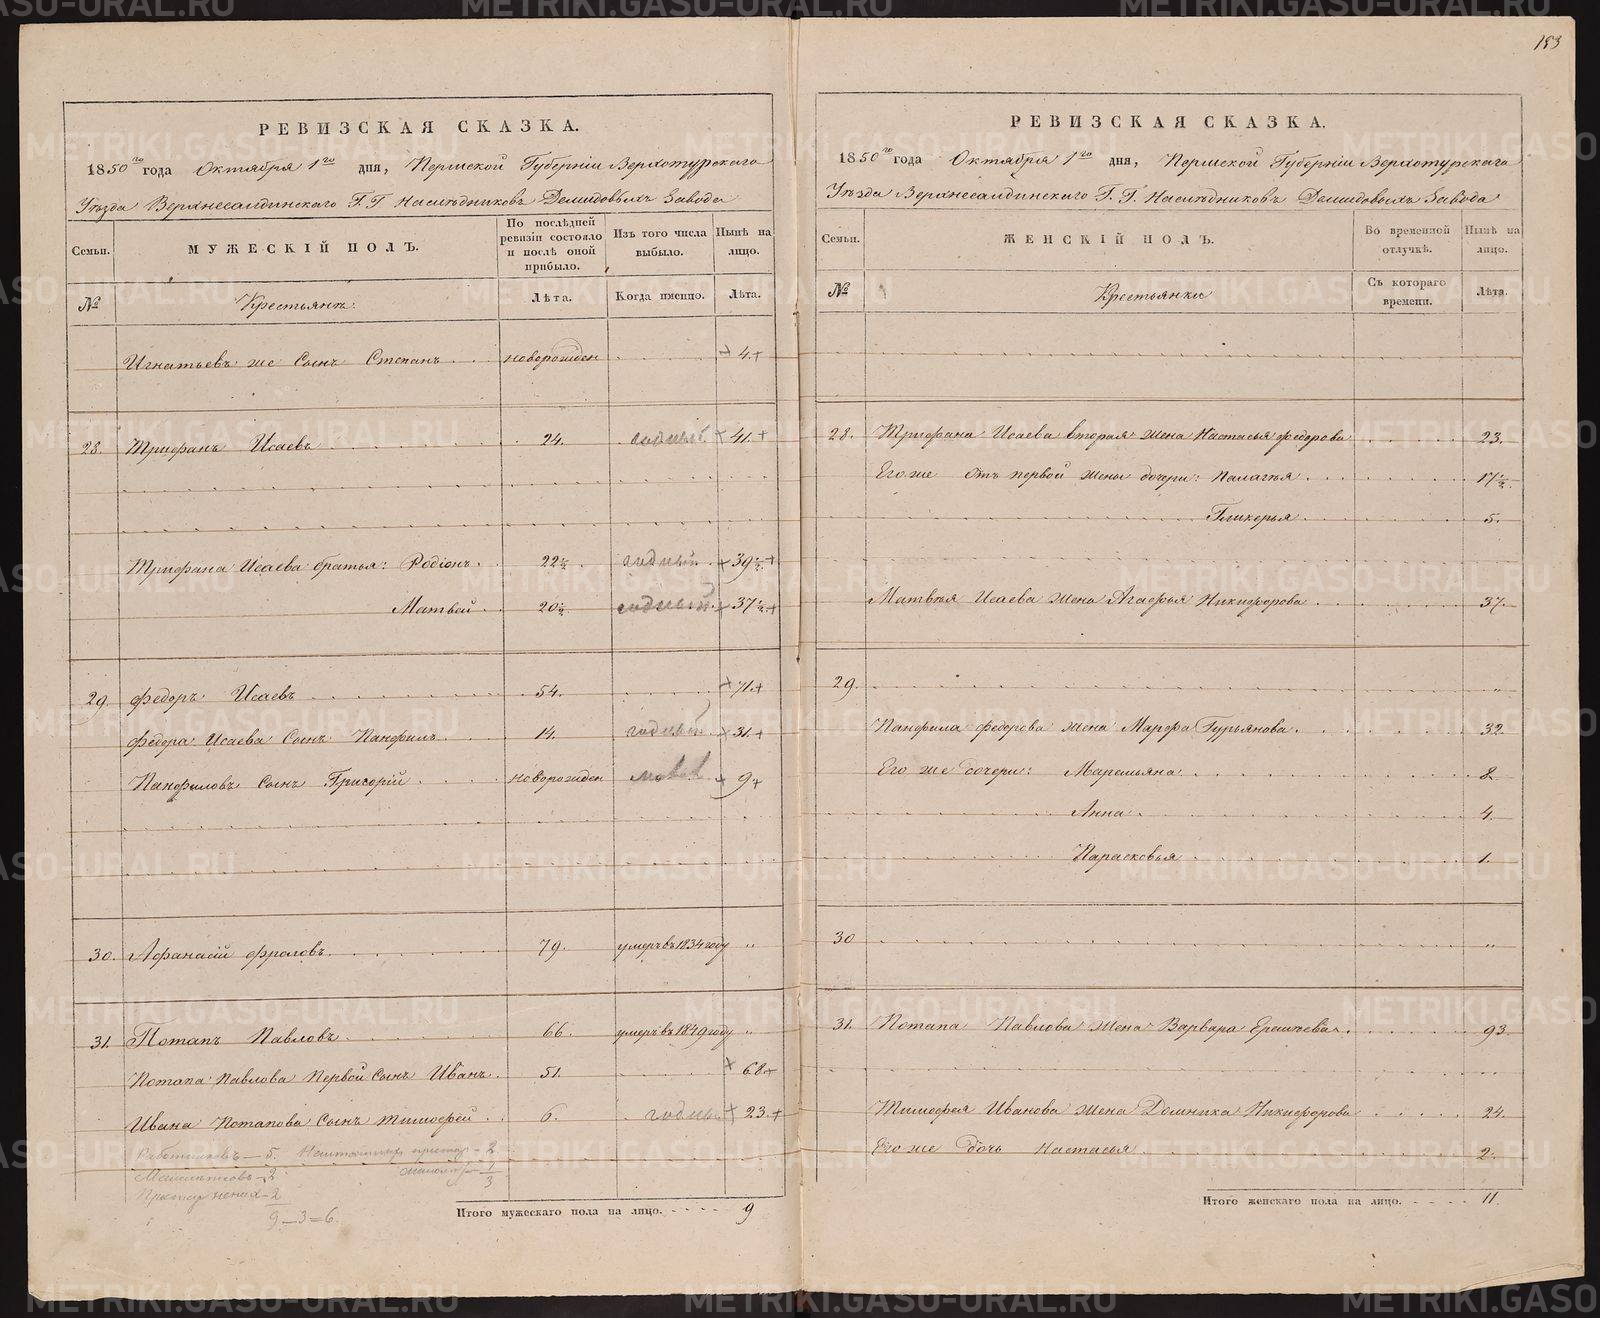 153
РЕВИЗСКАЯ СКАЗКА.
1850го года Октября 1го дня, Пермской Губерніи Верхотурскаго
Уѣзда Верхнесалдинскаго Г. Г. Наслѣдниковъ Демидовыхъ Завода
Семьи. МУЖЕСКІЙ ПОЛЪ. По послѣдней ревизіи состояло и послѣ оной прибыло. Изъ того числа выбыло. Нынѣ на лицо.
№ Крестьянъ. Лѣта. Когда именно. Лѣта.
Игнатьевъ же Сынъ Степанъ новорожден 4.
28. Трифанъ Исаевъ 24. годный 41.
Трифана Исаева братья: Родіонъ. 22½ годный 39½
Матвѣй 20½ годный 37½
29. Федоръ Исаевъ 54. 71.
Федора Исаева Сынъ Панфилъ 14. годный 31.
Панфиловъ сынъ Григорій новорожден 9.
30. Афанасій Фроловъ 79. умеръ въ 1834 году "
31. Потапъ Павловъ 66. умеръ въ 1849 году "
Потапа Павлова Первой Сынъ Иванъ 51. 68.
Ивана Потапова Сынъ Тимофей 6. годный 23.
Работниковъ — 5. 2
2 1
2 3
9 — 3 = 6.
Итого мужескаго пола на лицо. 9
РЕВИЗСКАЯ СКАЗКА.
1850го года Октября 1го дня, Пермской Губерніи Верхотурскаго
Уѣзда Верхнесалдинскаго Г. Г. Наслѣдниковъ Демидовыхъ Завода
Семьи. ЖЕНСКІЙ ПОЛЪ. Во временной отлучкѣ. Нынѣ на лицо.
№ Крестьянки Съ котораго времени. Лѣта.
28. Трифана Исаева вторая жена Настасья Федорова 23.
Его же Отъ первой жены дочери: Палагѣя 17½
Гликерья 5.
Матвѣя Исаева жена Агафья Никифорова 37.
29. "
Панфила Федорова жена Марфа Гурьянова. 32.
Его же дочери: Маремьяна 8.
Анна 4.
Парасковья 1.
30 "
31. Потапа Павлова жена Варвара Ермичева. 93.
Тимофея Иванова жена Домника Никифорова 24.
Его же дочь Настасья 2.
Итого женскаго пола на лицо. 11.
METRIKI.GASO-URAL.RU